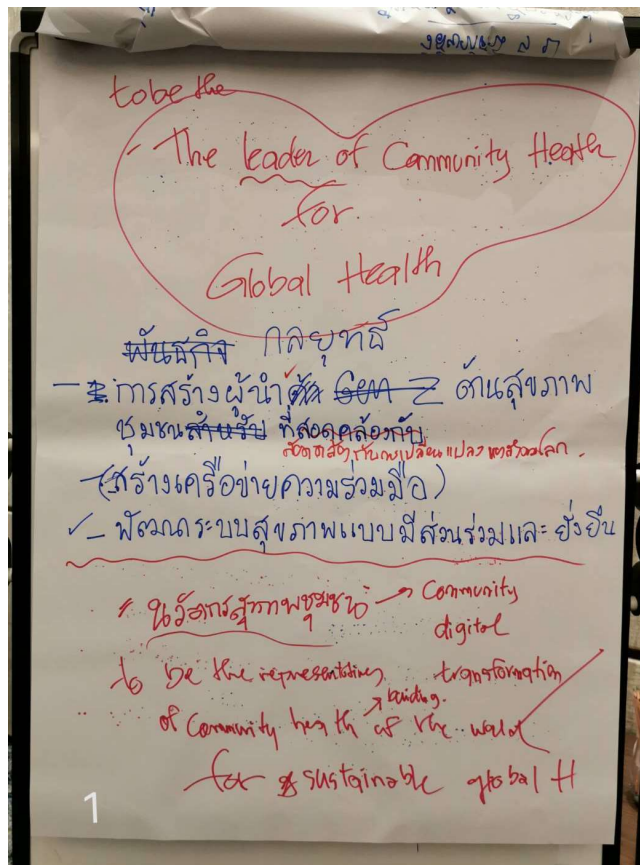 to be the
- The leader of Community Heath
for
Global Health
พันธกิจ กลยุทธ์
- การสร้างผู้นำ Gen Z ด้านสุขภาพ
ชุมชนสำหรับ ที่สอดคล้องกับ
สอดคล้องกับการเปลี่ยนแปลงของโลก
- (สร้างเครือข่ายความร่วมมือ)
✓ - พัฒนาระบบสุขภาพแบบมีส่วนร่วมและ ยั่งยืน
นวัตกรสุขภาพชุมชน → Community
digital
transformation
to be the representatives
of Community health of the world
for sustainable global H
1